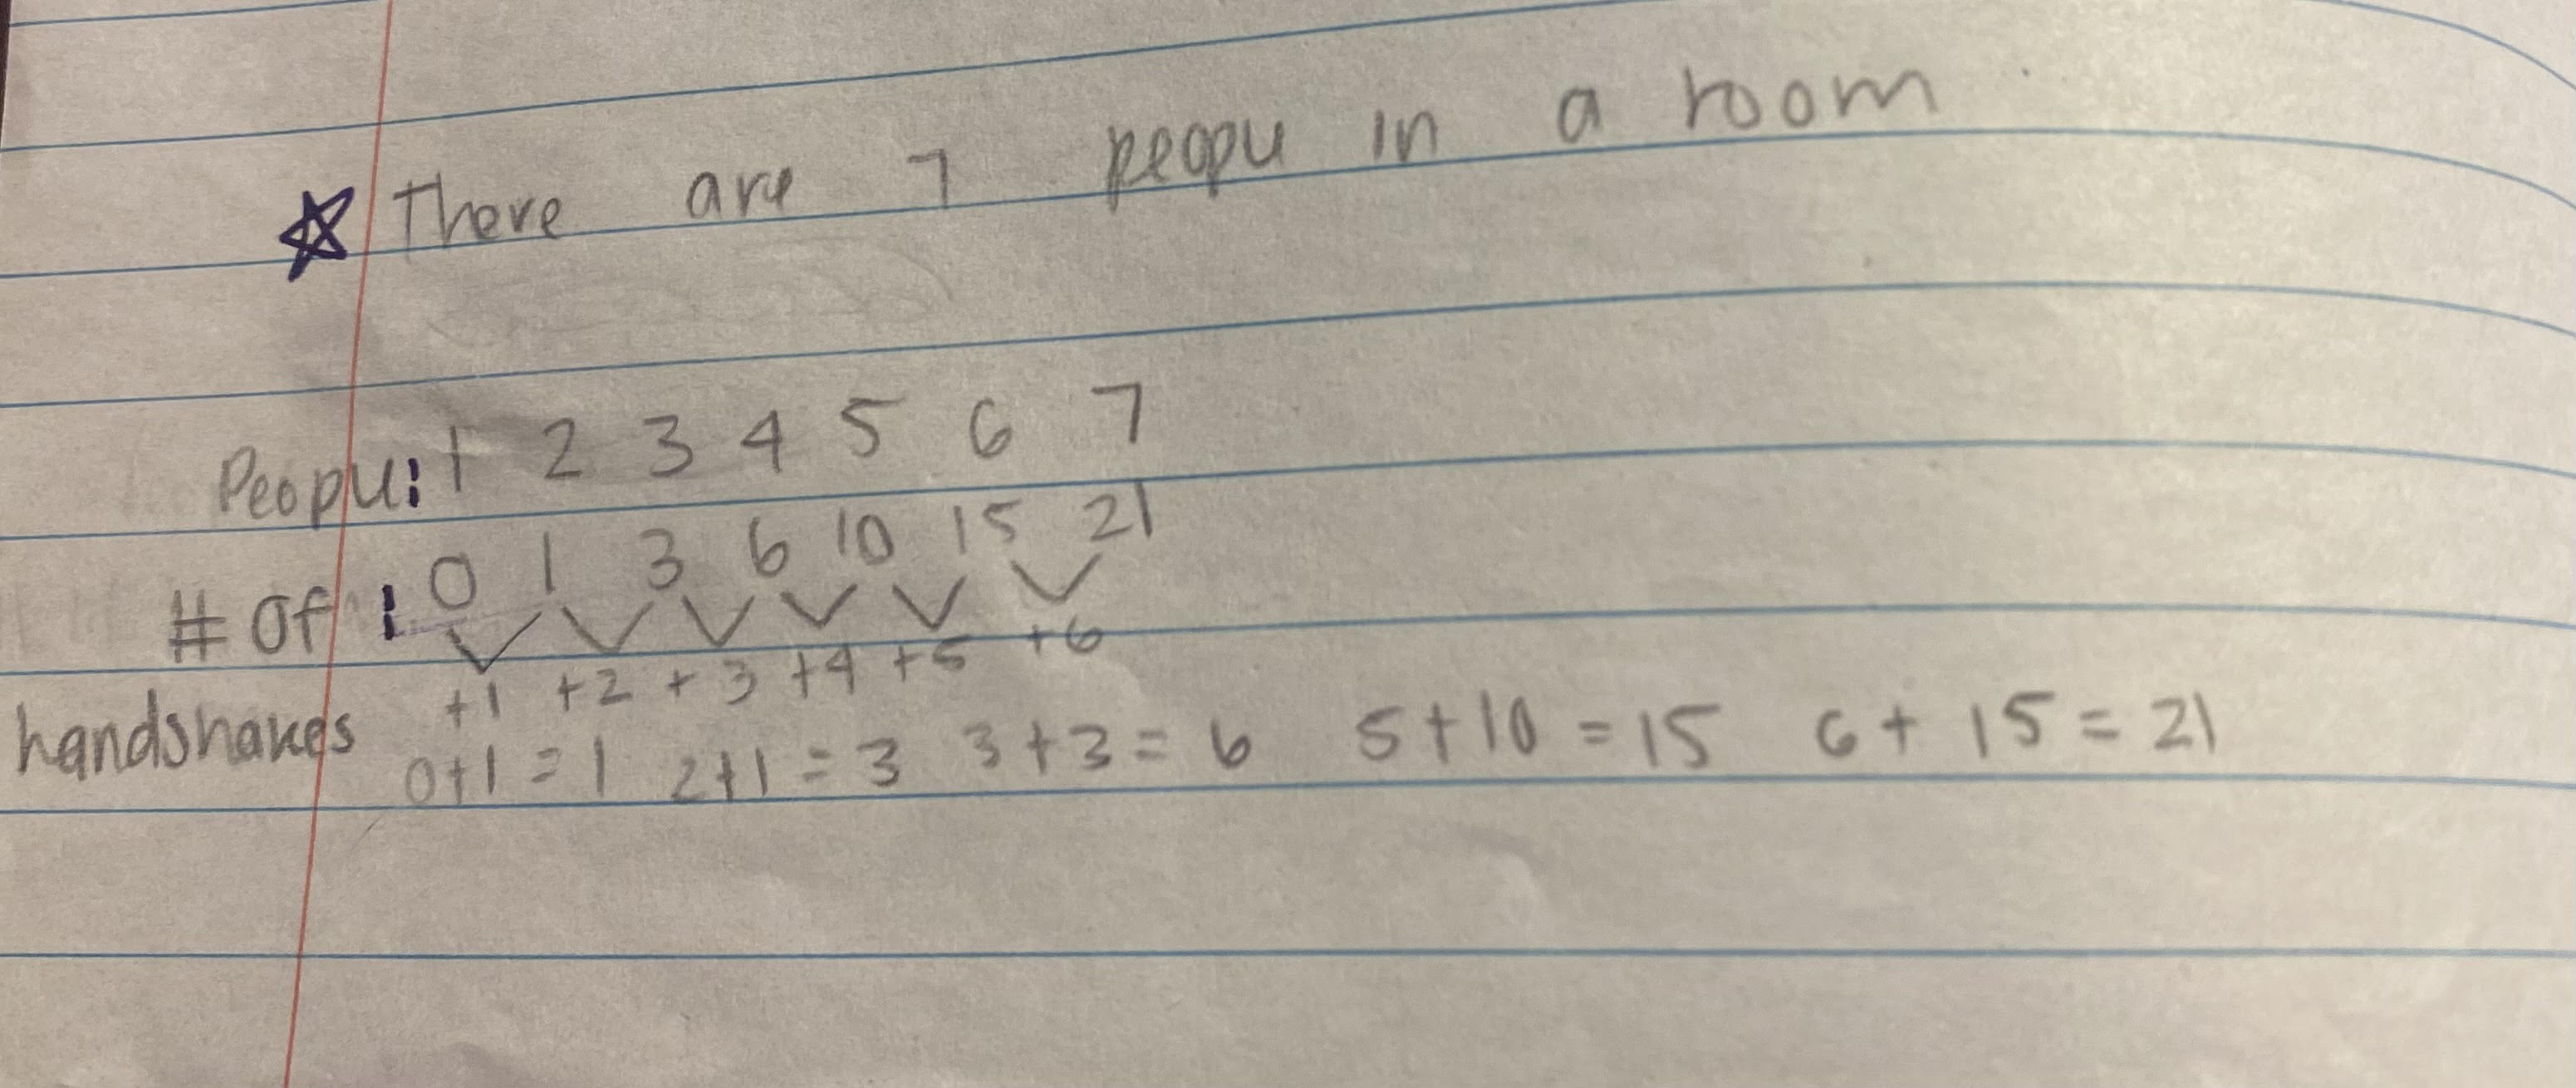 There are 7 people in a room
People: 1 2 3 4 5 6 7
# of : 0 1 3 6 10 15 21
+1 +2 +3 +4 +5 +6
handshakes
0+1=1 2+1=3 3+3=6 5+10=15 6+15=21